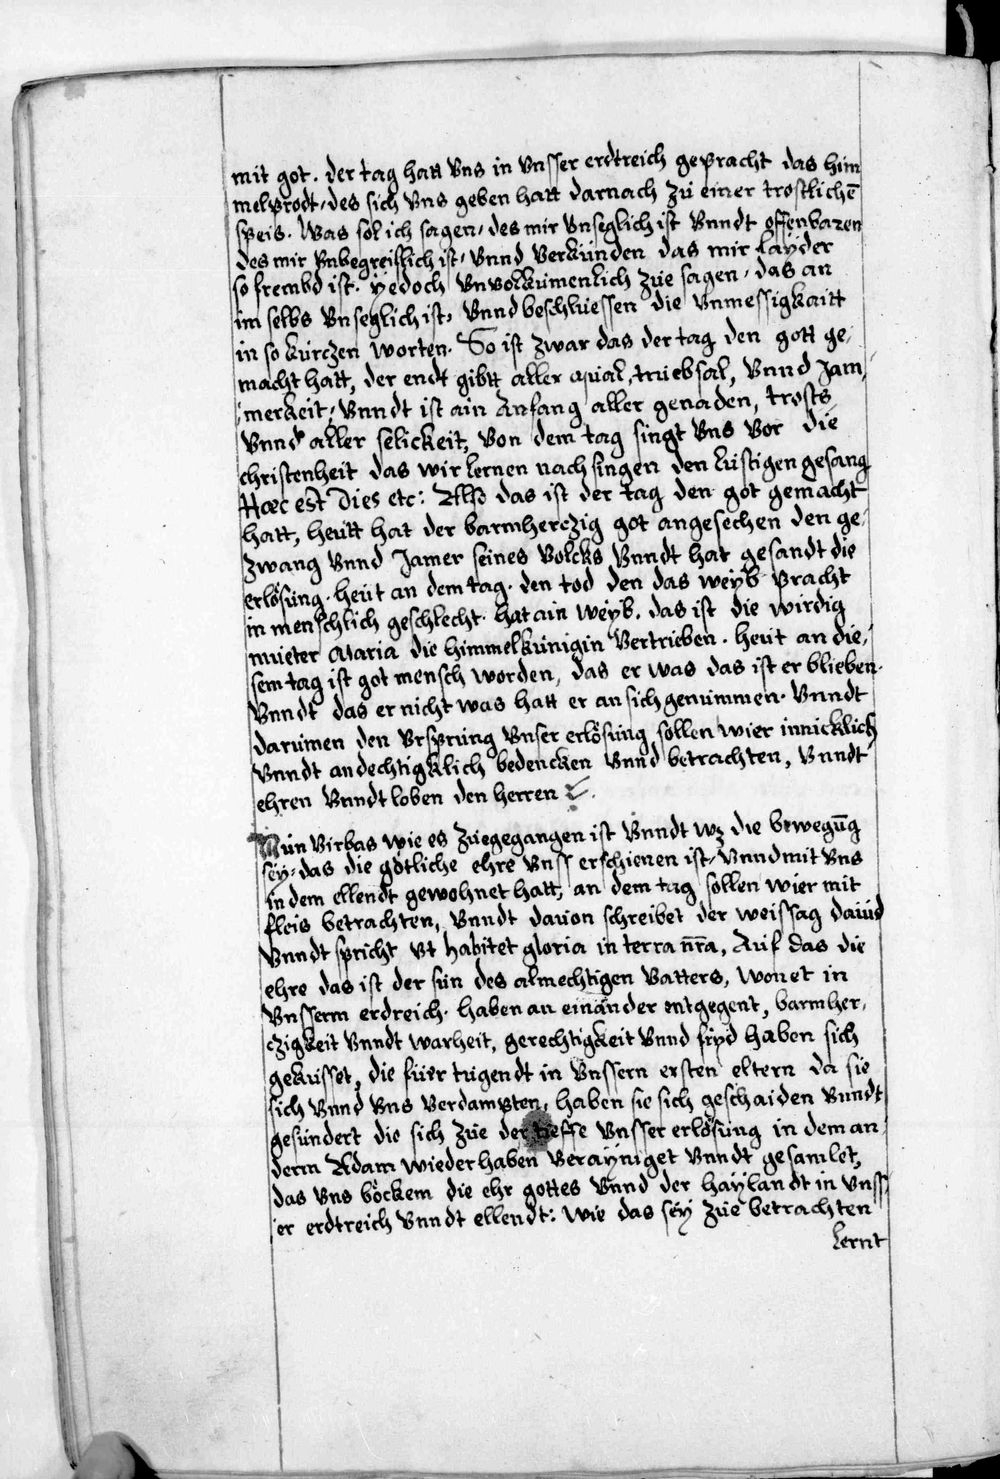 mit got. der tag hatt vns in vnsser erdtreich gepracht das him
melprodt, des sich vns geben hatt darnach zu einer trostlichē
speis. Was sol ich sagen, des mir vnseglich ist vnndt offenbaren
des mir vnbegreifflich ist, vnnd verkünden das mir layder
so frembd ist. yedoch vnvolkumenlich züe sagen, das an
im selbs vnseglich ist, vnnd beschluessen die vnmessigkaitt
in so kurczen worten. So ist zwar das der tag den gott ge,
macht hatt, der endt gibtt aller qual, truebsal, vnnd Jam,
merkeit, vnndt ist ain Anfang aller genaden, trosts,
vnnd aller selickeit, von dem tag singt vns vor die
christenheit das wir lernen nach singen den lustigen gesang
Hæc est Dies etc: Also das ist der tag den got gemacht
hatt, heutt hat der barmherczig got angesechen den ge,
zwang vnnd Jamer seines volcks vnndt hat gesandt die
erlösung. heut an dem tag. den tod den das weyb pracht
in menschlich geschlecht. hat ain weyb. das ist die wirdig
mueter Maria die himmelkunigin vertrieben. heut an die,
sem tag ist got mensch worden, das er was das ist er blieben.
vnndt das er nicht was hatt er an sich genummen. vnndt
darumen den vrsprung vnser erlösung sollen wier innicklich
vnndt andechtigklich bedencken vnnd betrachten, vnndt
ehren vnndt loben den herren
Nun virbas wie es züegegangen ist vnndt wz die bewegūg
sey, das die gotliche ehre vnss erschienen ist, vnnd mit vns
in dem ellendt gewohnet hatt, an dem tag sollen wier mit
fleis betrachten, vnndt dauon schreibet der weissag dauid
vnndt spricht vt habitet gloria in terra n̄r̄a, Auf das die
ehre das ist der sun des almechtigen vatters, wonet in
vnsserm erdreich. haben an einander entgegent, barmher,
czigkeit vnndt warheit, gerechtigkeit vnnd fryd haben sich
gekusset, die fuer tugendt in vnssern ersten eltern da sie
sich vnnd vns verdampten, haben sie sich geschaiden vnndt
gesundert die sich züe der tieffe vnsser erlösung in dem an,
dern Adam wieder haben verayniget vnndt gesamlet,
das vns böckem die ehr gottes vnnd der haylandt in vnss,
er erdtreich vnndt ellendt: wie das sey züe betrachten
Lernt